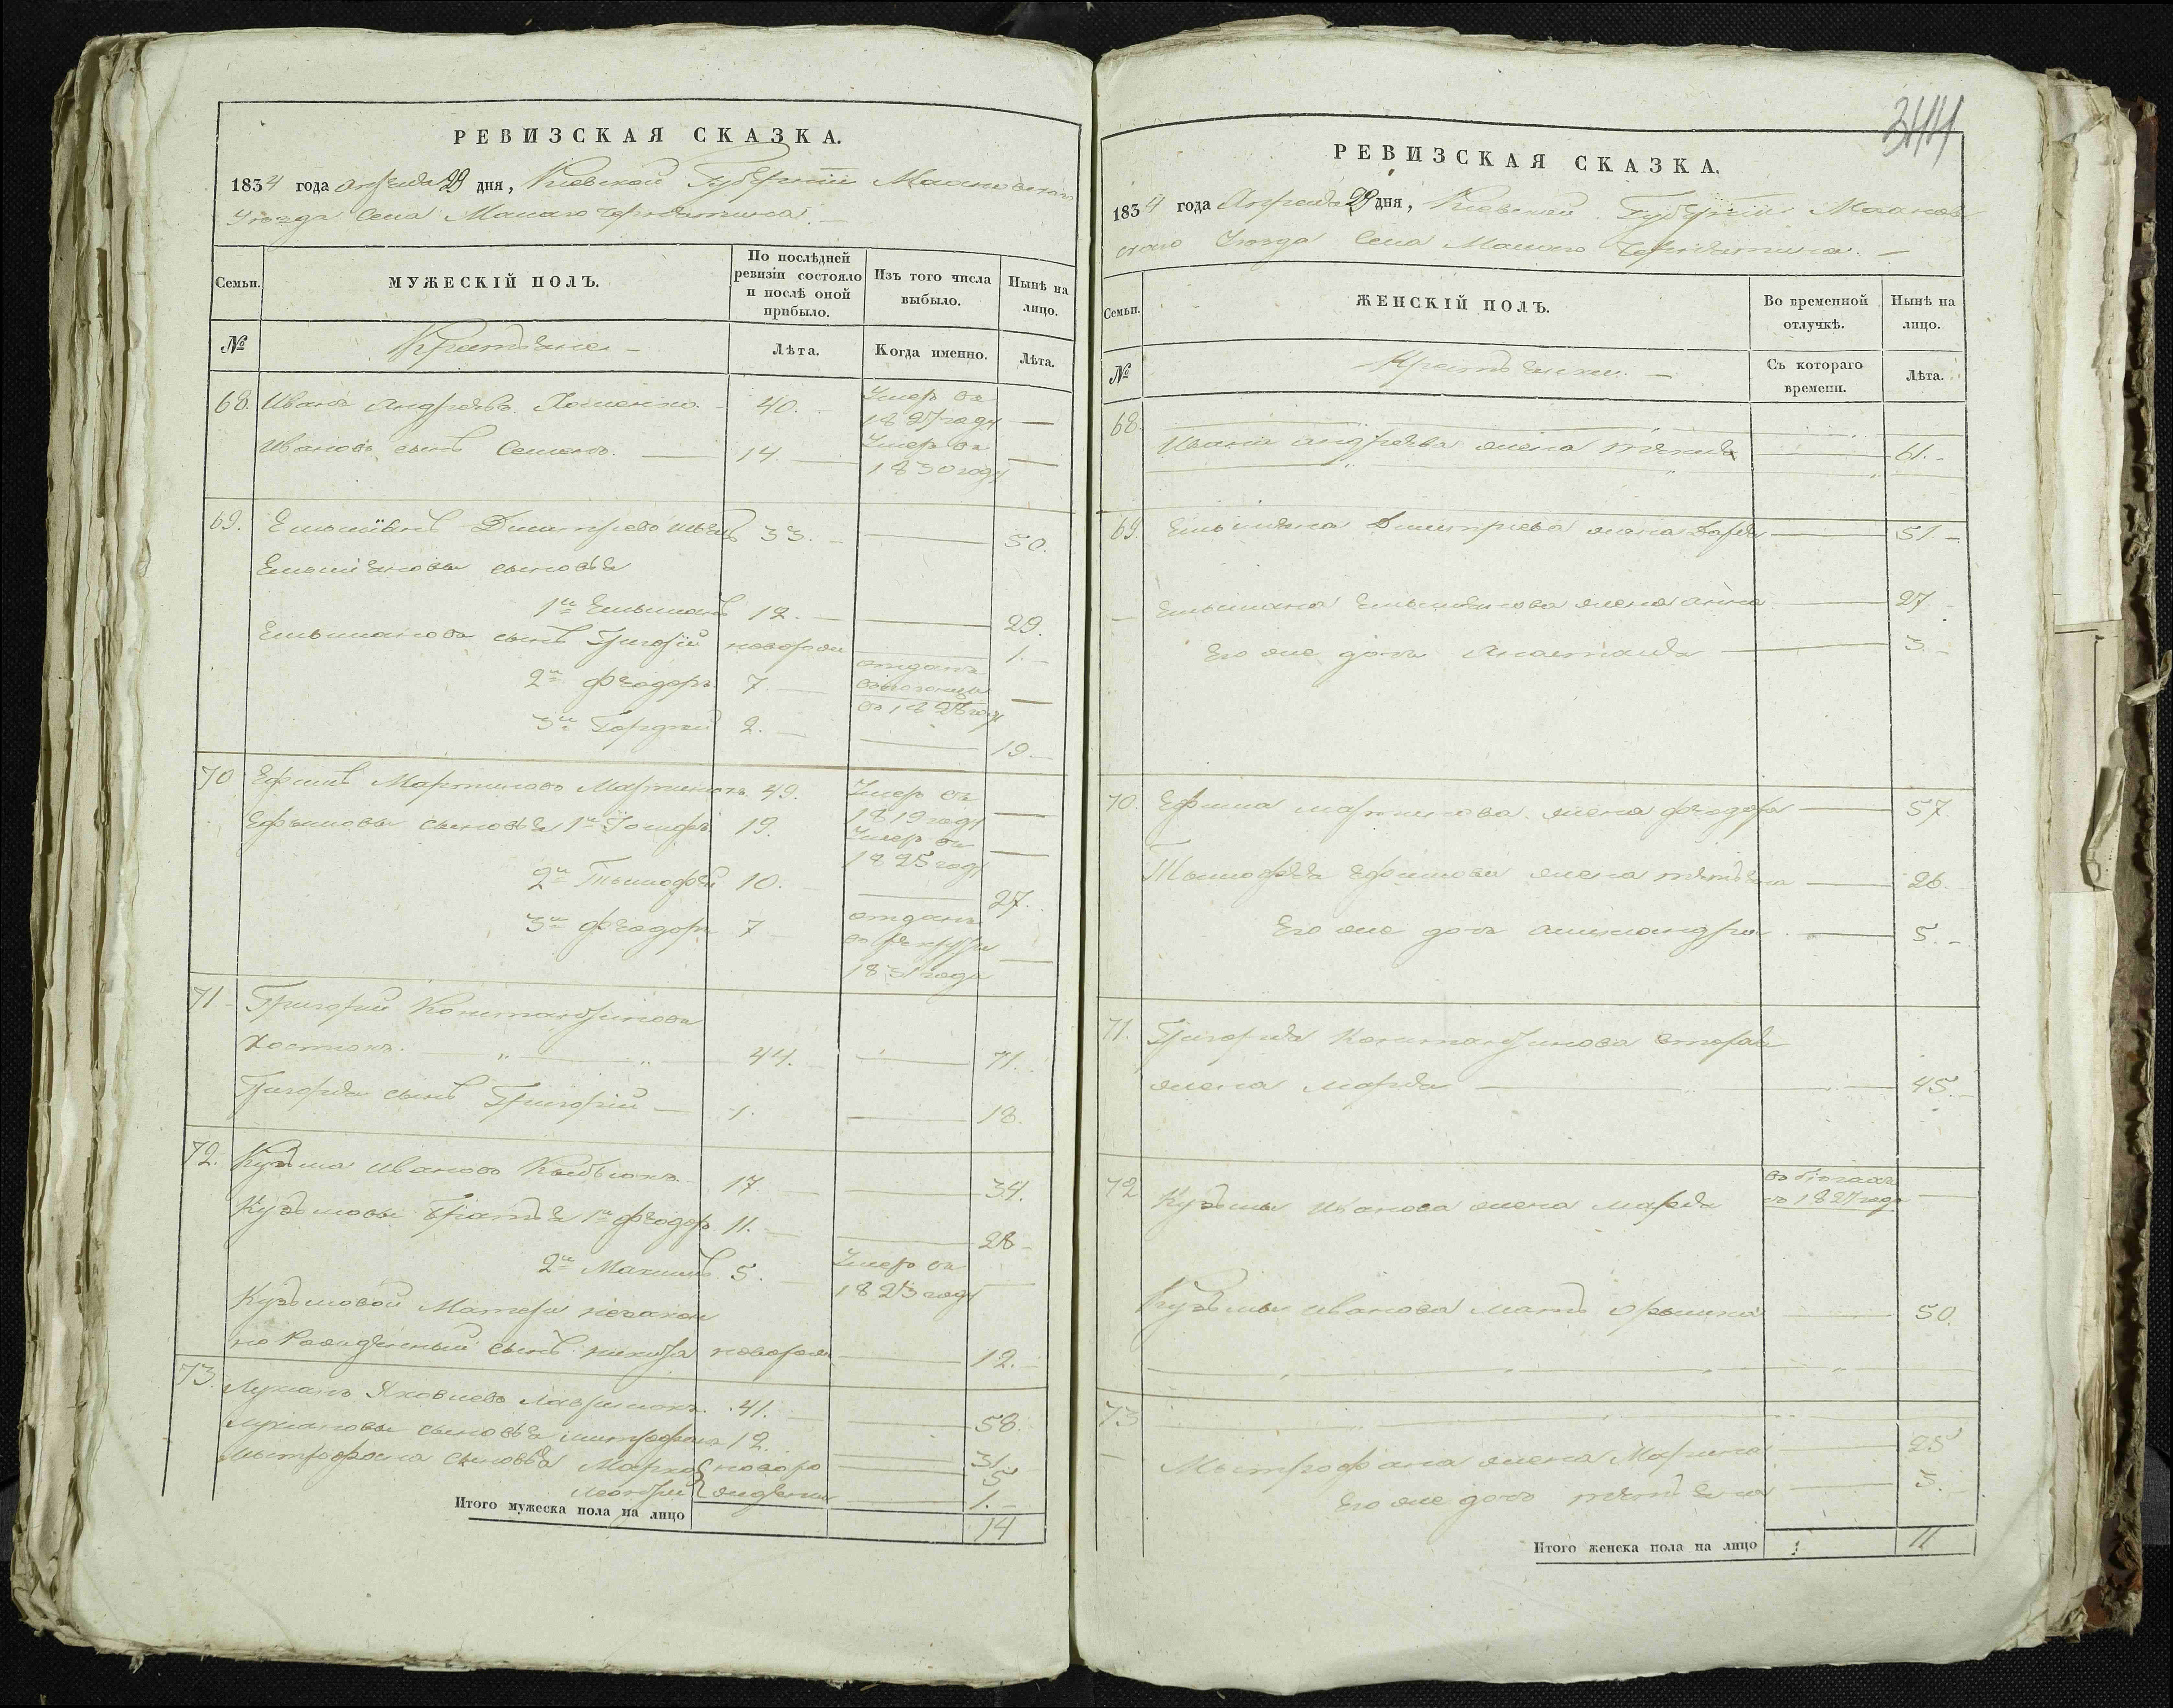 РЕВИЗСКАЯ СКАЗКА.
1834 года Апреля 29 дня, Киевской Губернии
уезда Села Малаго
Семьи. МУЖЕСКІЙ ПОЛЪ. По послѣдней ревизіи состояло и послѣ оной прибыло. Изъ того числа выбыло. Нынѣ на лицо.
№ Крестьяне Лѣта. Когда именно. Лѣта.
68. Иванъ Андреевъ 40. Умеръ въ 1827 году —
Ивановъ сынъ Семенъ. 14. Умеръ въ 1830 году —
69. Емельянъ Дмитревъ 33. — 50.
Емельяновы сыновья
1й Емельянъ 12. — 29.
Емельяновъ сынъ Григорій новорож — 1.
2й Феодоръ 7. отданъ въ 1828 году —
3й Гордей 2. — 19
70 Ефимъ Мартиновъ Мартинюкъ 49. Умеръ въ 1819 году —
Ефимовы сыновья 1й Іосифъ 19. Умеръ въ 1825 году —
2й Тымофей 10. — 27.
3й Феодоръ 7 отданъ в рекруты 1831 года —
71 Григорий Константиновъ
Костюкъ. 44. — 71.
Григорія сынъ Григорій 1. — 18.
72. Кузьма Ивановъ 17. — 34.
Кузьмовы братья 1й Феодоръ 11. — 28
2й Махимъ 5. Умеръ въ 1823 году
Кузьмовой Матери незакон
но Рожденный сынъ никита новорож — 12.
73. Лукіанъ Яковлевъ Лавринюкъ. 41. — 58.
Лукіановы сыновья митрофанъ 12. — 31.
Мытрофана сыновья Марко новоро — 5
Леонтій жденные — 1.
Итого мужеска пола на лицо 14
344
РЕВИЗСКАЯ СКАЗКА.
1834 года Апреля 29 дня, Киевской Губернии
скаго уезда Села Малого
Семьи. ЖЕНСКІЙ ПОЛЪ. Во временной отлучкѣ. Нынѣ на лицо.
№ Крестьянки. Съ котораго времени. Лѣта.
68.
Ивана андреева жена 61.
69. Емельяна Дмитриева жена Дарія — 51.
Емельяна Емельянова жена анна — 27
Его же дочь Анастасія — 3.
70. Ефима мартинова жена феодора — 57.
Тымофея Ефимова жена татьяна — 26.
Его же дочь александра — 5.
71. Григорія Константинова вторая
жена Марія — 45.
72 Кузьмы Иванова жена марія въ бѣгахъ съ 1827 года —
Кузьмы иванова мать орышка — 50.
73
Мытрофана жена Марина — 25
Его же дочь татьяна — 3.
Итого женска пола на лицо 11